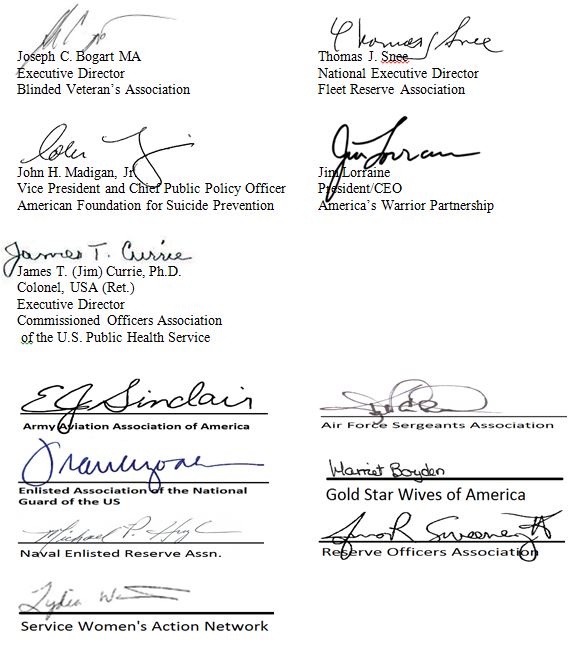 Thomas J Snee
Joseph C. Bogart MA
Executive Director
Blinded Veteran's Association
Thomas J. Snee
National Executive Director
Fleet Reserve Association
John H. Madigan, Jr
Vice President and Chief Public Policy Officer
American Foundation for Suicide Prevention
Jim Lorraine
President/CEO
America's Warrior Partnership
James T. Currie
James T. (Jim) Currie, Ph.D.
Colonel, USA (Ret.)
Executive Director
Commissioned Officers Association
of the U.S. Public Health Service
EJ Sinclair
Army Aviation Association of America
Air Force Sergeants Association
Enlisted Association of the National
Guard of the US
Harriet Boyden
Gold Star Wives of America
Michael P.
Naval Enlisted Reserve Assn.
Sweeney
Reserve Officers Association
Lydia
Service Women's Action Network